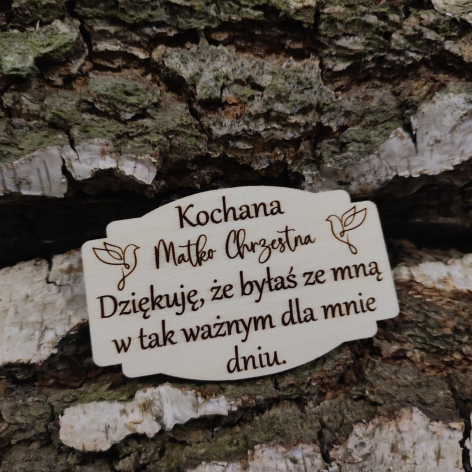 Kochana
Matko Chrzestna
Dziękuję, że byłaś ze mną
w tak ważnym dla mnie
dniu.